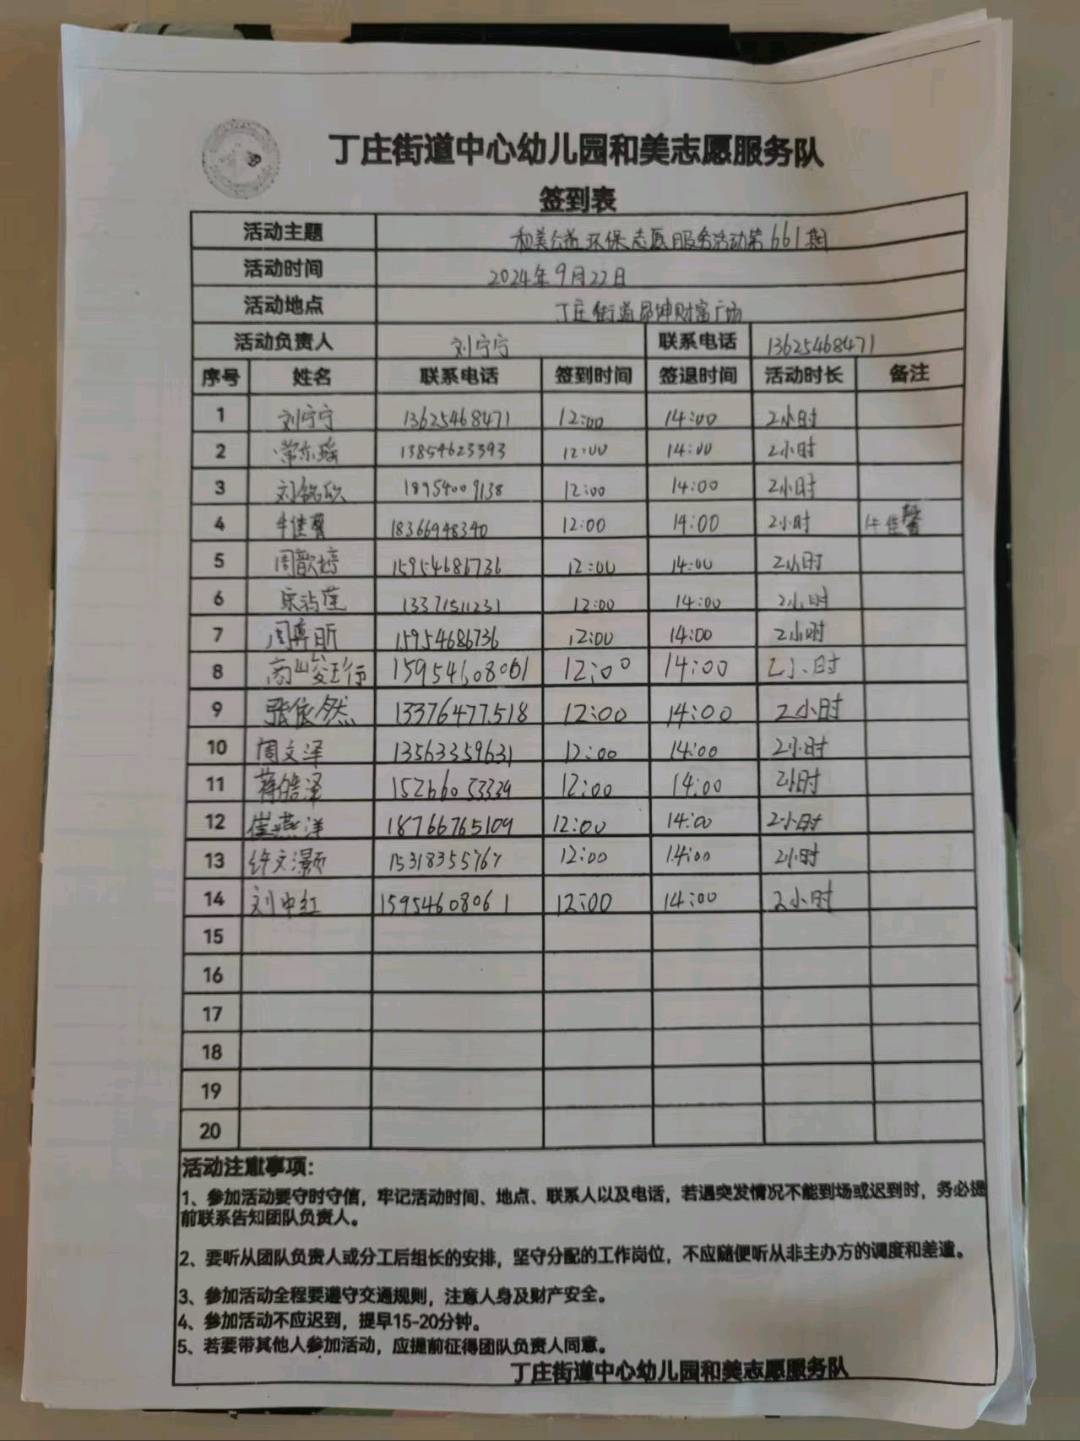 丁庄街道中心幼儿园和美志愿服务队
签到表
活动主题 和美公益环保志愿服务活动第661期
活动时间 2024年9月22日
活动地点 丁庄街道昂坤财富广场
活动负责人 刘宁宁 联系电话 13625468471
序号 姓名 联系电话 签到时间 签退时间 活动时长 备注
1 刘宁宁 13625468471 12:00 14:00 2小时
2 常亦瑶 13854623393 12:00 14:00 2小时
3 刘铭欣 18954009138 12:00 14:00 2小时
4 牛佳馨 18366948340 12:00 14:00 2小时 牛佳馨
5 周歆婷 15954686736 12:00 14:00 2小时
6 宋沾莲 13371511231 12:00 14:00 2小时
7 周尊昕 15954686736 12:00 14:00 2小时
8 高峻珩 15954608061 12:00 14:00 2小时
9 张依然 13376477518 12:00 14:00 2小时
10 周文泽 13563359631 12:00 14:00 2小时
11 蒋皓泽 15266053339 12:00 14:00 2小时
12 崔燕洋 18766765109 12:00 14:00 2小时
13 许文灏 15318355767 12:00 14:00 2小时
14 刘中红 15954608061 12:00 14:00 2小时
15
16
17
18
19
20
活动注意事项：
1、参加活动要守时守信，牢记活动时间、地点、联系人以及电话，若遇突发情况不能到场或迟到时，务必提
前联系告知团队负责人。
2、要听从团队负责人或分工后组长的安排，坚守分配的工作岗位，不应随便听从非主办方的调度和差遣。
3、参加活动全程要遵守交通规则，注意人身及财产安全。
4、参加活动不应迟到，提早15-20分钟。
5、若要带其他人参加活动，应提前征得团队负责人同意。
丁庄街道中心幼儿园和美志愿服务队